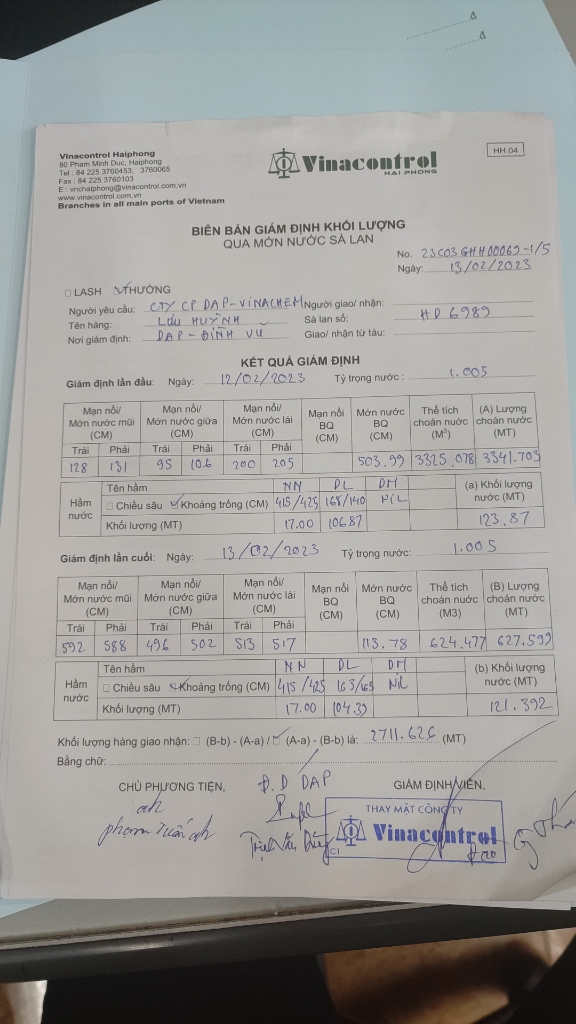 Vinacontrol Haiphong
80 Pham Minh Duc, Haiphong
Tel : 84 225 3760453; 3760065
Fax : 84 225 3760103
E : vnchaiphong@vinacontrol.com.vn
www.vinacontrol.com.vn
Branches in all main ports of Vietnam
Vinacontrol
HAI PHONG
HH 04
BIÊN BẢN GIÁM ĐỊNH KHỐI LƯỢNG
QUA MỚN NƯỚC SÀ LAN
No. 23C03GHH00069-1/5
Ngày: 13/02/2023
LASH THƯỜNG
Người yêu cầu: CTY CP DAP-VINACHEM Người giao/ nhận:
Tên hàng: LƯU HUỲNH Sà lan số: HD 6989
Nơi giám định: DAP-ĐÌNH VŨ Giao/ nhận từ tàu:
KẾT QUẢ GIÁM ĐỊNH
Giám định lần đầu: Ngày: 12/02/2023 Tỷ trọng nước: 1.005
Mạn nổi/ Mớn nước mũi (CM) Mạn nổi/ Mớn nước giữa (CM) Mạn nổi/ Mớn nước lái (CM) Mạn nổi BQ (CM) Mớn nước BQ (CM) Thể tích choán nước (M³) (A) Lượng choán nước (MT)
Trái Phải Trái Phải Trái Phải
128 131 95 106 200 205 503.99 3325.078 3341.703
Hầm nước
Tên hầm NN DL DM (a) Khối lượng nước (MT)
Chiều sâu Khoảng trống (CM) 415/425 168/140 NiL
Khối lượng (MT) 17.00 106.87 123.87
Giám định lần cuối: Ngày: 13/02/2023 Tỷ trọng nước: 1.005
Mạn nổi/ Mớn nước mũi (CM) Mạn nổi/ Mớn nước giữa (CM) Mạn nổi/ Mớn nước lái (CM) Mạn nổi BQ (CM) Mớn nước BQ (CM) Thể tích choán nước (M3) (B) Lượng choán nước (MT)
Trái Phải Trái Phải Trái Phải
592 588 496 502 513 517 113.78 624.477 627.599
Hầm nước
Tên hầm NN DL DM (b) Khối lượng nước (MT)
Chiều sâu Khoảng trống (CM) 415/425 163/165 NiL
Khối lượng (MT) 17.00 104.39 121.392
Khối lượng hàng giao nhận: (B-b) - (A-a) / (A-a) - (B-b) là: 2711.626 (MT)
Bằng chữ:
CHỦ PHƯƠNG TIỆN, Đ.D DAP GIÁM ĐỊNH VIÊN,
THAY MẶT CÔNG TY
Vinacontrol